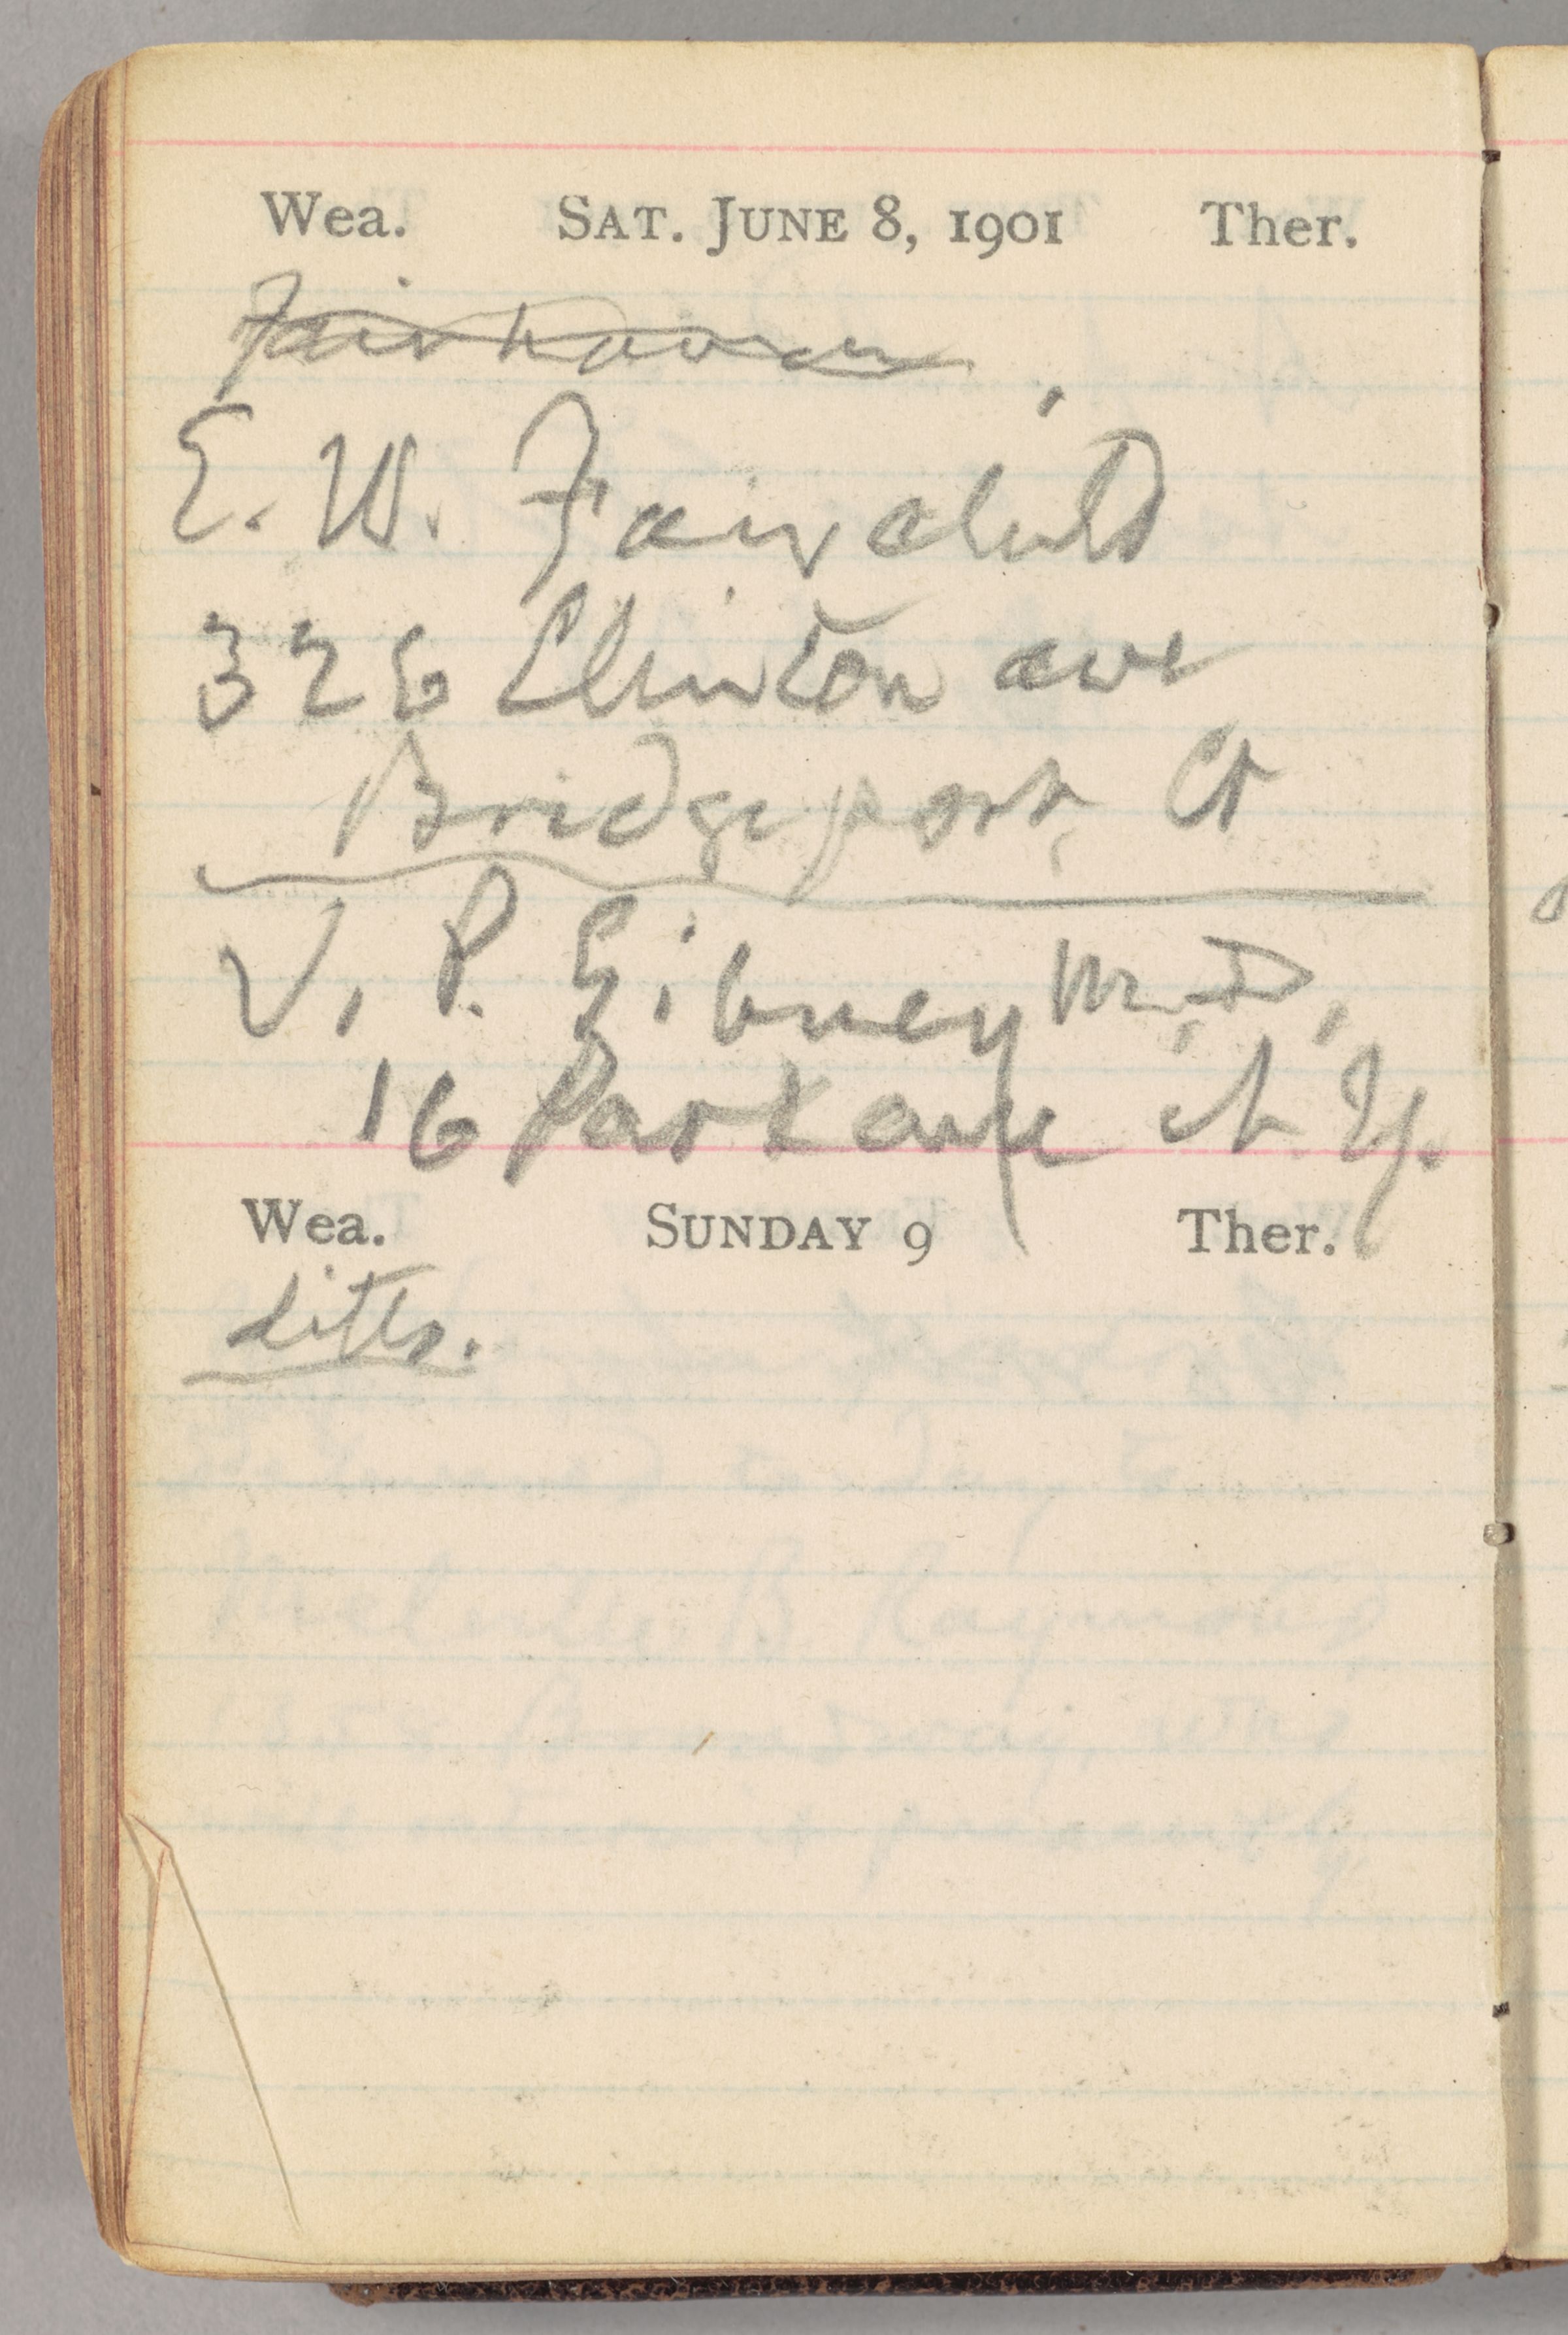 Wea. SAT. JUNE 8, 1901 Ther.
Fairhaven
E. W. Fairchild
326 Clinton ave
Bridgeport, Ct
V. P. Gibney M.D,
16 Park ave N.Y.
Wea. SUNDAY 9 Ther.